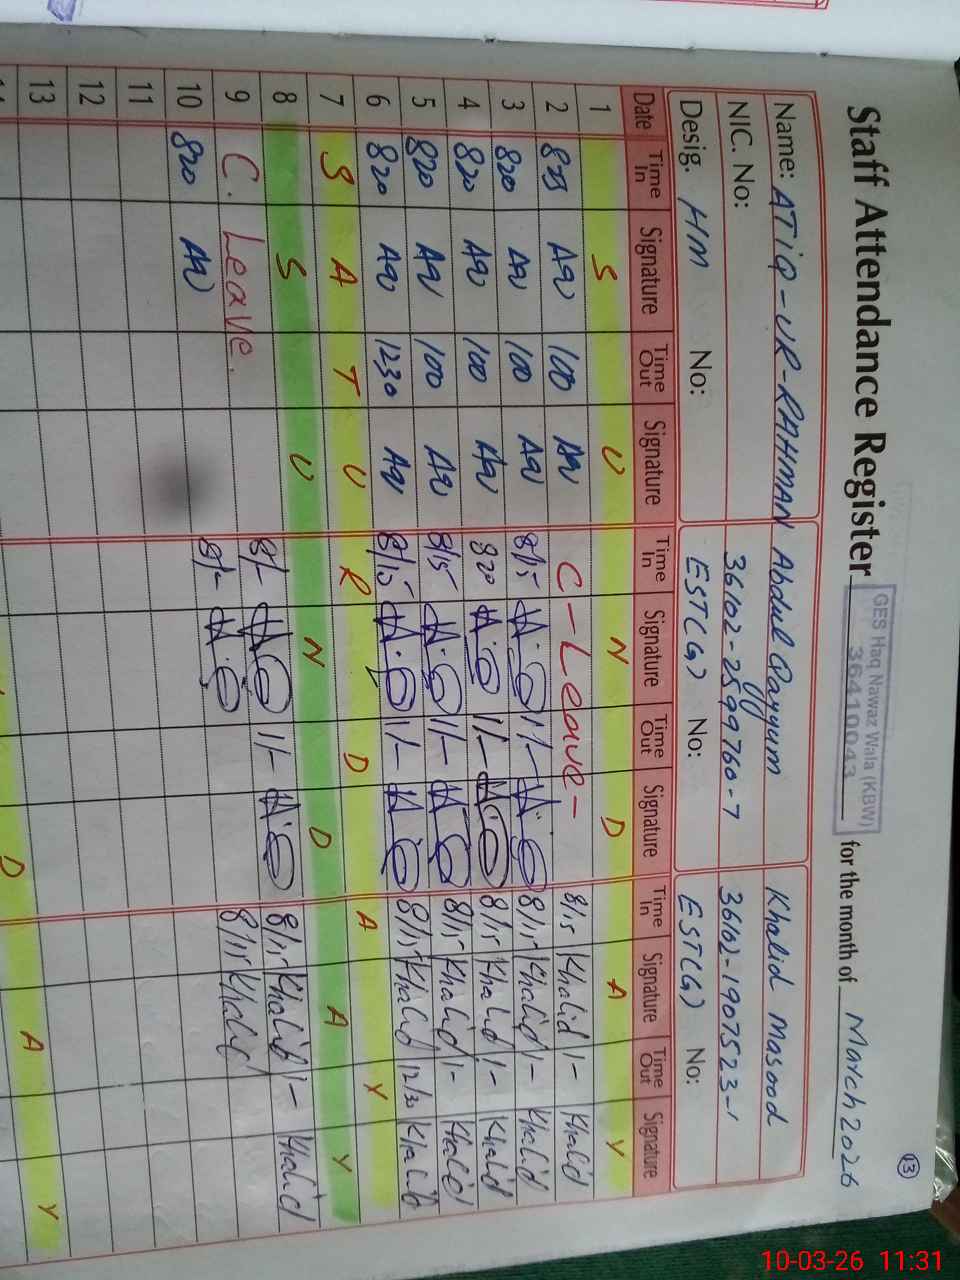 13
Staff Attendance Register for the month of March 2026
GES Haq Nawaz Wala (KBW)
36410043
Name: ATiQ-UR-RAHMAN Abdul Qayyum Khalid Masood
NIC. No: 36102-2599760-7 36102-1907523-1
Desig. HM No: EST(G) No: EST(G) No:
Date Time In Signature Time Out Signature Time In Signature Time Out Signature Time In Signature Time Out Signature
1 S U N D A Y
2 825 AQ 100 AQ C-Leave- 8/15 Khalid 1- Khalid
3 820 AQ 100 AQ 8/15 A.Q 1/- A.Q 8/15 Khalid 1- Khalid
4 820 AQ 100 AQ 820 A.Q 1/- A.Q 8/15 Khalid 1- Khalid
5 820 AQ 100 AQ 8/15 A.Q 1/- A.Q 8/15 Khalid 1- Khalid
6 820 AQ 1230 AQ 8/15 A.Q 1/- A.Q 8/15 Khalid 12/30 Khalid
7 S A T U R D A Y
8 S U N D A Y
9 C. Leave. 8/- A.Q 1/- A.Q 8/15 Khalid 1- Khalid
10 820 AQ 8/- A.Q 8/15 Khalid
11
12
13
D A Y
10-03-26 11:31